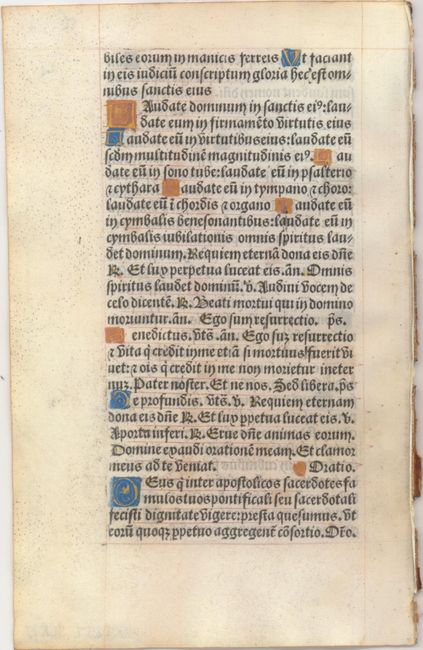 biles eorum in manicis ferreis Ut faciant
in eis iudiciū conscriptum gloria hec est om-
nibus sanctis eius
Laudate dominum in sanctis eiꝰ: lau-
date eum in firmamēto virtutis eius
Laudate eū in virtutibus eius: laudate eū
scḋm multitudinē magnitudinis eiꝰ. Lau
date eū in sono tube: laudate eū in psalterio
⁊ cythara Laudate eū in tympano ⁊ choro:
laudate eū ī chordis ⁊ organo Laudate eū
in cymbalis benesonantibus: laudate eū in
cymbalis iubilationis omnis spiritus lau-
det dominum. Requiem eternā dona eis dn̄e
℟. Et lux perpetua luceat eis. an̄. Omnis
spiritus laudet dominū. ℣. Audiui vocem de
celo dicentē. ℟. Beati mortui qui in domino
moriuntur. an̄. Ego sum resurrectio. ps̄.
Benedictus. vt̄s. an̄. Ego suꝫ resurrectio
⁊ vita q̄ credit in me etiā si mortuus fuerit vi
uet: ⁊ oīs q̄ credit in me non morietur in eter
nuꝫ. Pater noster. Et ne nos. Sed libera. ps̄
De profundis. vt̄s. ℣. Requiem eternam
dona eis dn̄e ℟. Et lux ꝑpetua luceat eis. ℣.
A porta inferi. ℟. Erue dn̄e animas eorum.
Domine exaudi orationē meam. Et clamor
meus ad te veniat. Oratio.
Deus q̄ inter apostolicos sacerdotes fa
mulos tuos pontificali seu sacerdotali
fecisti dignitate vigere: presta quesumus. vt
eorū quoqꝫ ꝑpetuo aggregent᷑ cōsortio.